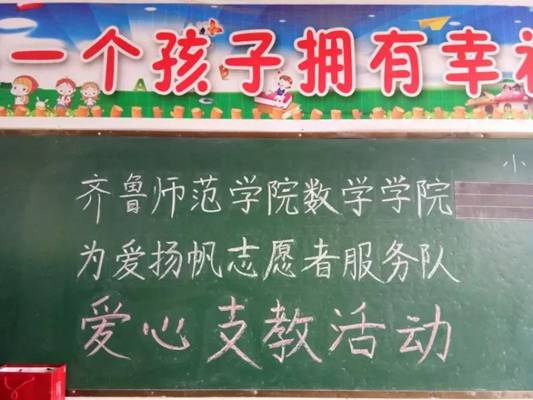 一个孩子拥有幸福
小
齐鲁师范学院数学学院
为爱扬帆志愿者服务队
爱心支教活动